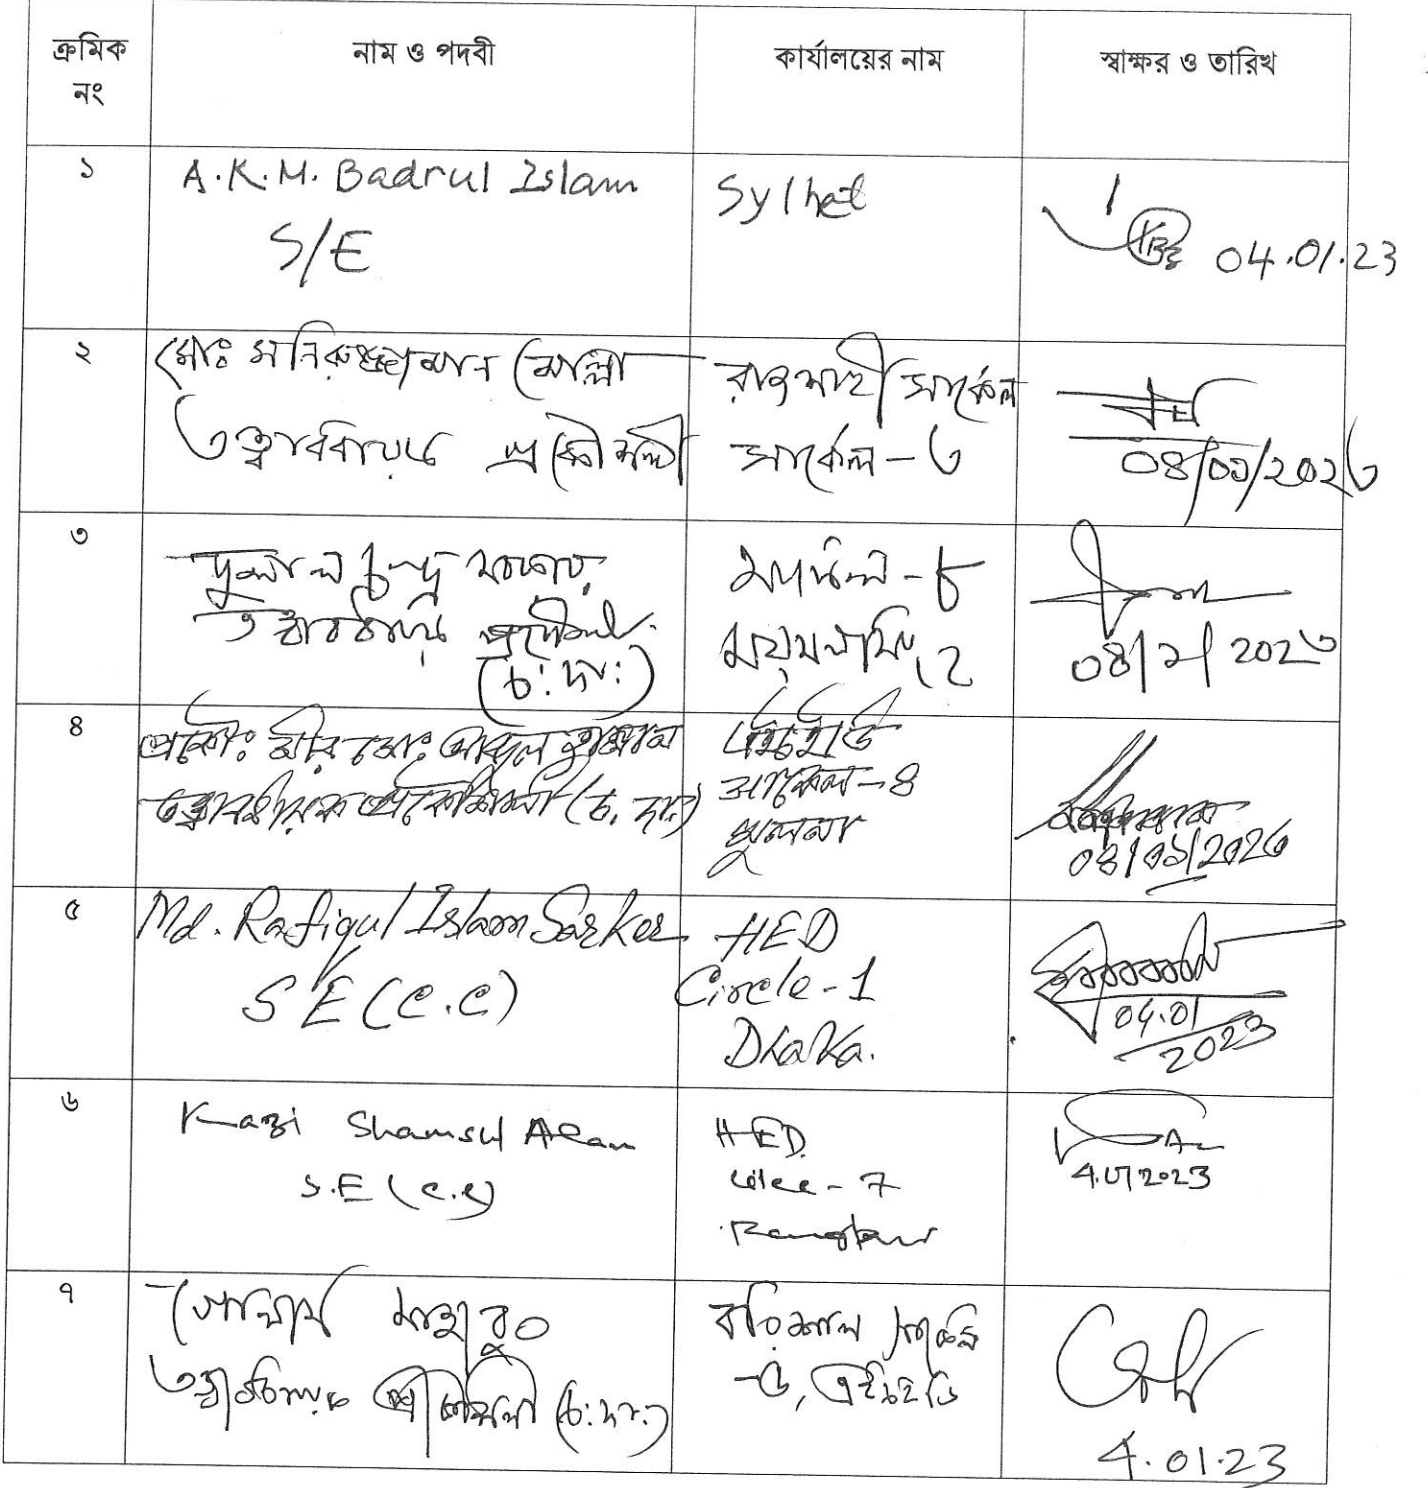 ক্রমিক নং
নাম ও পদবী
কার্যালয়ের নাম
স্বাক্ষর ও তারিখ
১
A.K.M. Badrul Islam
S/E
Sylhet
04.01.23
২
মোঃ মনিরুজ্জামান মোল্লা
তত্ত্বাবধায়ক প্রকৌশলী
রাজশাহী সার্কেল
সার্কেল-৩
০৪/০১/২০২৩
৩
দুলাল চন্দ্র সরকার
তত্ত্বাবধায়ক প্রকৌশলী
(চ:দা:)
সার্কেল-৮
ময়মনসিংহ
০৪/১/২০২৩
৪
প্রকৌঃ মীর মোঃ
তত্ত্বাবধায়ক প্রকৌশলী (চ.দা.)
এইচইডি
সার্কেল-৪
খুলনা
০৪/০১/২০২৩
৫
Md. Rafiqul Islam Sarker
SE (C.C)
HED
Circle-1
Dhaka.
04.01
2023
৬
Kazi Shamsul Alam
S.E (C.C)
HED.
Circle-7
Rangpur
4.01.2023
৭
মাহাবুব
তত্ত্বাবধায়ক প্রকৌশলী (চ:দা:)
বরিশাল সার্কেল
-৫, এইচইডি
4.01.23